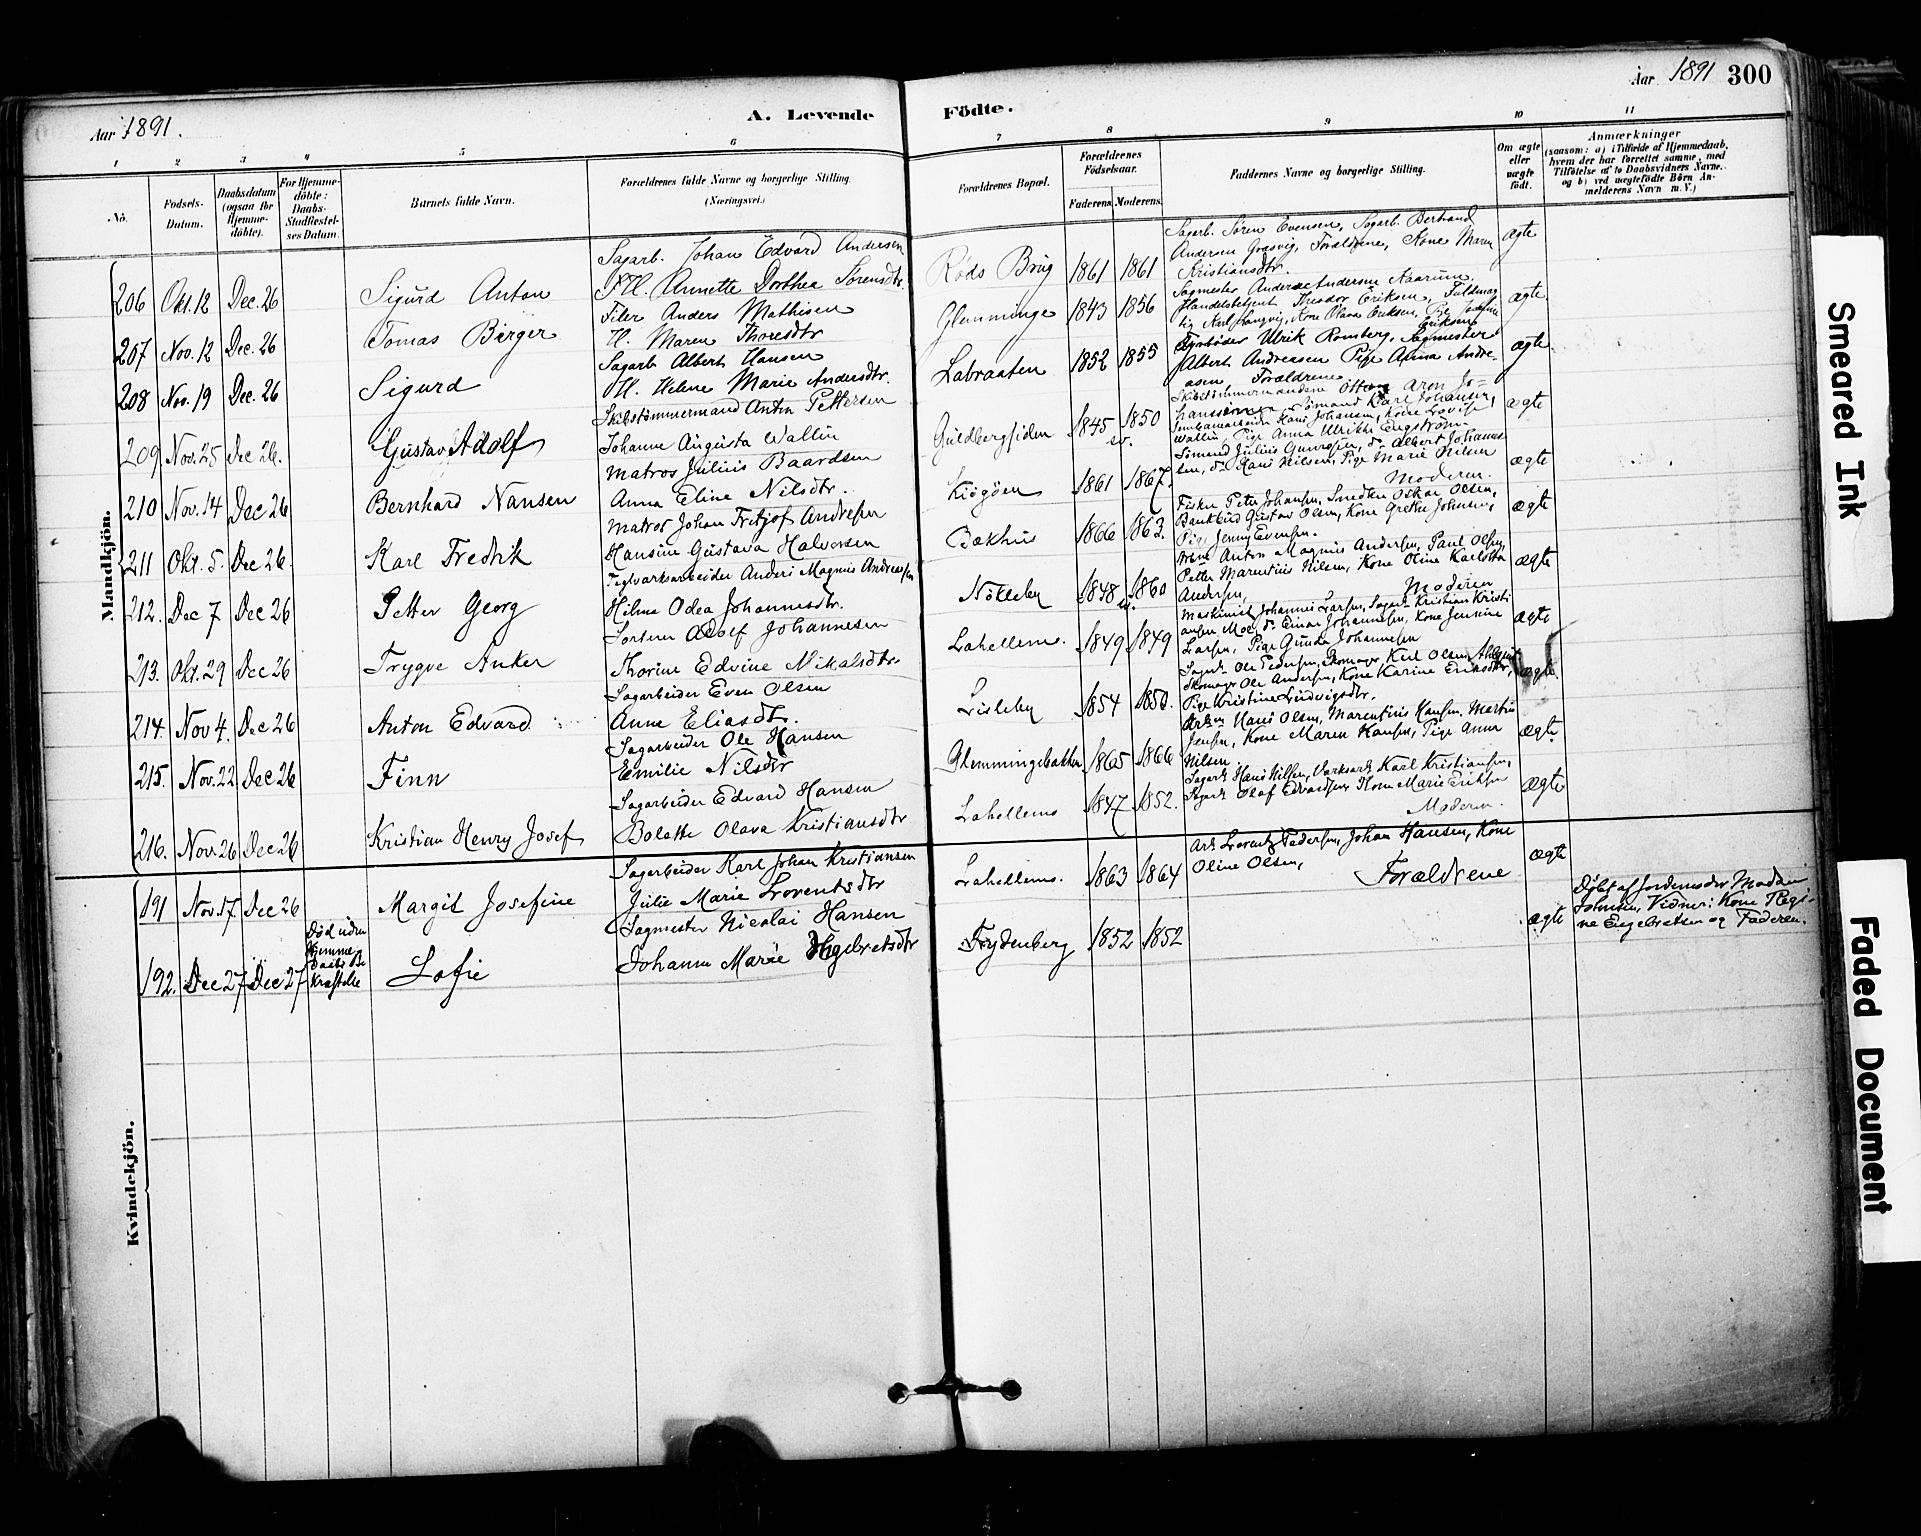 Aar 1891.
A. Levende
Födte.
Aar 1891 300
1 2 3 4 5 6 7 8 9 10 11
No.
Fødsels-Datum.
Daabsdatum (ogsaa for Hjemme-döbte).
For Hjemme-döbte: Daabs-Stadfæstel-ses Datum.
Barnets fulde Navn.
Forældrenes fulde Navne og borgerlige Stilling. (Næringsvei.)
Forældrenes Bopæl.
Forældrenes Födselsaar.
Faderens. Moderens.
Faddernes Navne og borgerlige Stilling.
Om ægte eller uægte födt.
Anmærkninger (saasom: a) i Tilfælde af Hjemmedaab, hvem der har forrettet samme, med Tilföielse af to Daabsvidners Navne, og b) ved uægtefödte Börn An-melderens Navn m. V.)
Mandkjön.
206 Okt. 12 Dec. 26 Sigurd Anton
Sagarb. Johan Edvard Andersen
Annette Dorthea Sørensdtr.
Røds Brug 1861 1861
Sagarb. Søren Evensen, Sagarb. Bertrand
Andersen Græsvig, Forældrene, Kone Maren
Kristiansdtr.
ægte
207 Nov. 12 Dec. 26 Tomas Birger
Filer Anders Mathisen
H. Maren Thoresdtr
Glemminge 1843 1856
Sagmester Andersen Aaarum
Handelsbetjent Theodor Eriksen,
Kone Olava Eriksen, Pige
Eriksen
ægte
208 Nov. 19 Dec. 26 Sigurd
Sagarb. Albert Hansen
H. Helene Marie Andersdtr.
Labraaten 1852 1855
Fyrbøder Ulrik Romberg, Sagmester
Albert Andreasen Pige Anna Andre-
asen, Forældrene
ægte
209 Nov. 25 Dec 26. Gustav Adolf
Skibstømmermand Anton Pettersen
Johanne Augusta Wallin
Guldbergsiden 1845 1850
Skibstømmermændene Otto Aron Jo-
hanssen Sømand Karl Johansen,
Hans Johansen, Kone Lovise
Wallin, Pige Anna Ulrikke Engstrøm.
ægte
210 Nov. 14 Dec 26 Bernhard Nansen
Matros Julius Baardsen
Anna Eline Nilsdtr.
Kiøgøen 1861 1867.
Sømand Julius Gunersen, do Albert Johanns-
sen, do Hans Nilsen, Pige Marie Nilsen
Moderen.
ægte
211 Okt. 5. Dec 26. Karl Fredrik
Matros Johan Fritjof Andresen
Hansine Gustava Halvorsen
Bakhus 1866 1863.
Fisker Peter Johansen, Snedker Oskar Olsen,
Gustav Olsen, Kone Grethe Johnsen,
Pige Jenny Evensen.
ægte
212. Dec 7 Dec 26 Petter Georg
Teglværksarbeider Anders Magnus Andreassen
Hilma Odea Johannesdtr.
Nökleby 1848 1860
Anton Magnus Andersen, Paul Olsen,
Petter Marentius Nilsen, Kone Oline Karlotta
Andersen, Moderen
ægte
213. Okt. 29 Dec 26 Trygve Anker
Sorterer Adolf Johannesen
Thorine Edvine Mikalsdtr.
Lahellems. 1849 1849
Maskinist Johannes Larsen, Sagarb. Kristian Kristi
ansen Moe, do Einar Johannesen, Kone Jensine
Larsen, Pige Gunda Johannesen
ægte
214. Nov 4. Dec 26 Anton Edvard
Sagarbeider Even Olsen
Anne Eliasdtr.
Lisleby 1854 1850.
Sagarb. Ole Pedersen, Skomager Karl Olsen
Skomager Ole Andersen, Kone Karine Eriksdtr,
Pige Kristine Ludvigsdtr.
ægte.
215. Nov. 22 Dec 26 Finn
Sagarbeider Ole Hansen
Emilie Nilsdtr
Glemmingebakken 1865 1866
Hans Olsen, Marentius Hansen, Martin
Jensen, Kone Maren Hansen, Pige Anna
Nilsen.
ægte
216. Nov. 26 Dec 26 Kristian Henry Josef
Sagarbeider Edvard Hansen
Bolette Olava Kristiansdtr
Lahellems 1847 1852.
Sagarb Hans Nilsen, Værksarb Karl Kristiansen,
Sagarb Olaf Edvardsen, Kone Marie Eriksen
Moderen.
ægte
Kvindekjön.
191 Nov. 17 Dec 26 Margit Josefine
Sagarbeider Karl Johan Kristiansen
Julie Marie Lorentsdtr
Lahellems. 1863 1864
Arb Lorentz Pedersen, Johan Hansen, Kone
Oline Olsen, Forældrene
ægte
192. Dec 27 Dec 27
Död uden
Hjemme-
daabs Be
kræftelse
Sofie
Sagmester Nicolai Hansen
Johanne Marie Engebretsdtr
Frydenberg 1852 1852
ægte
Döbt af Jordemoder Madam
Johnsen, Vidner: Kone Regi-
ne Engebretsen og Faderen.
Smeared Ink
Faded Document